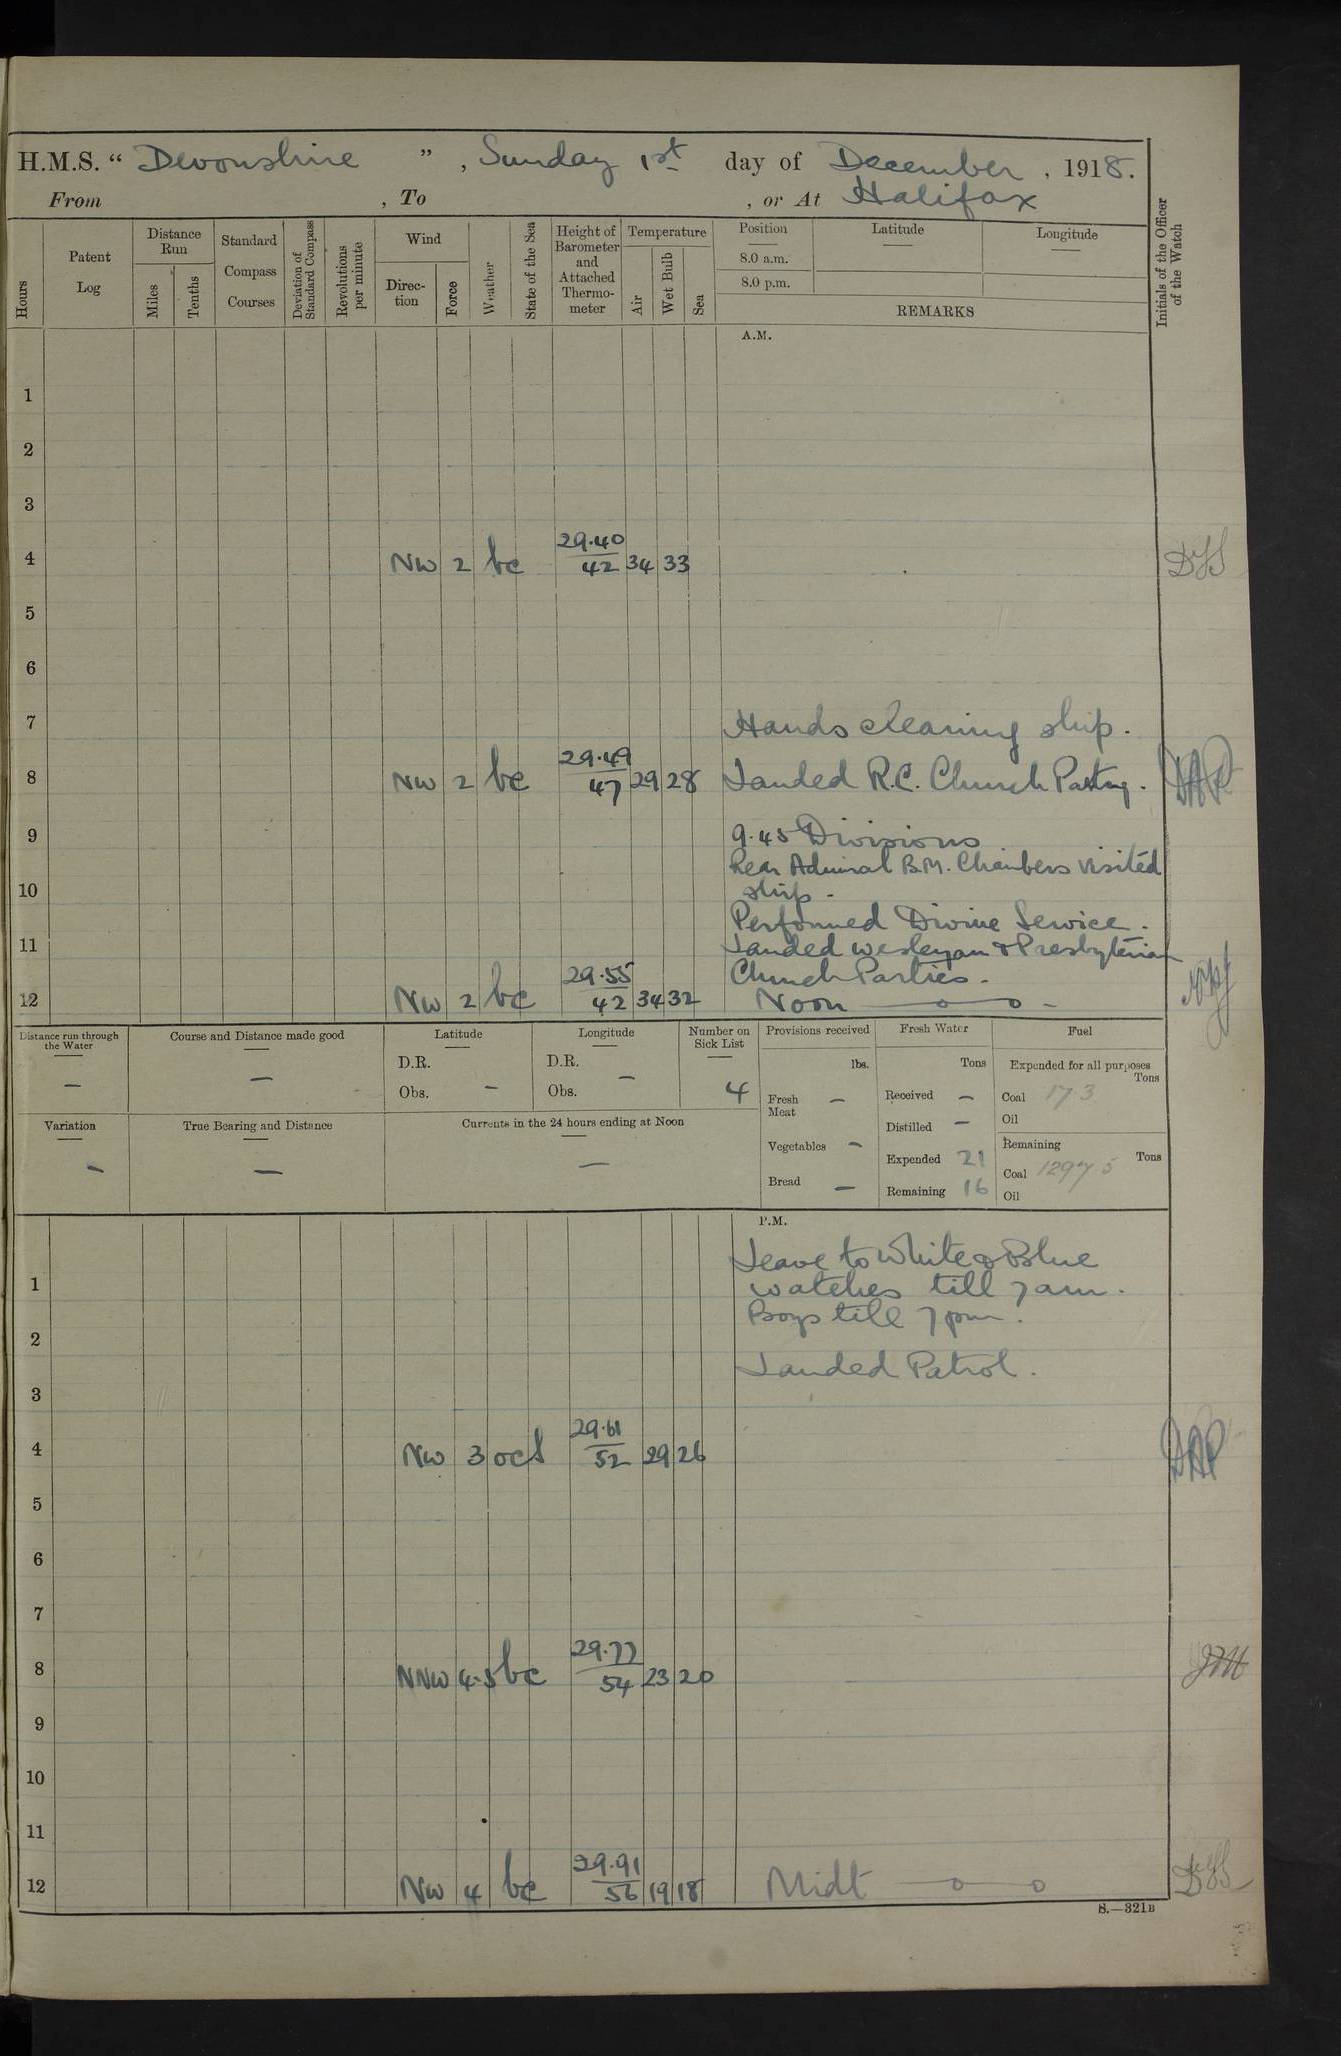 H.M.S. “ Devonshire ” , Sunday 1st day of December , 1918.
From , To , or At Halifax
Hours
Patent Log
Distance Run
Miles
Tenths
Standard Compass Courses
Deviation of Standard Compass
Revolutions per minute
Wind
Direction
Force
Weather
State of the Sea
Height of Barometer and Attached Thermometer
Temperature
Air
Wet Bulb
Sea
Position
8.0 a.m.
8.0 p.m.
Latitude
Longitude
REMARKS
Initials of the Officer of the Watch
A.M.
1
2
3
4 NW 2 bc 29.40/42 34 33
5
6
7 Hands cleaning ship.
8 NW 2 bc 29.49/47 29 28 Landed R.C. Church Party. DAP
9 9.45 Divisions
Rear Admiral B.M. Chambers visited
10 ship -
Performed Divine Service.
11 Landed Wesleyan & Presbyterian
Church Parties -
12 NW 2 bc 29.55/42 34 32 Noon
Distance run through the Water
—
Course and Distance made good
—
Latitude
D.R.
Obs. —
Longitude
D.R.
Obs. —
Number on Sick List
4
Provisions received
lbs.
Fresh Meat —
Vegetables —
Bread —
Fresh Water
Tons
Received —
Distilled —
Expended 21
Remaining 16
Fuel
Expended for all purposes
Tons
Coal 17.3
Oil
Remaining
Tons
Coal 1297.5
Oil
Variation
—
True Bearing and Distance
—
Currents in the 24 hours ending at Noon
—
P.M.
Leave to White & Blue
1 watches till 7am.
Boys till 7pm.
2
Landed Patrol.
3
4 NW 3 ocs 29.61/52 29 26 DAP
5
6
7
8 NNW 4.5 bc 29.77/54 23 20
9
10
11
12 NW 4 bc 29.91/56 19 18 Midt
S.—321B